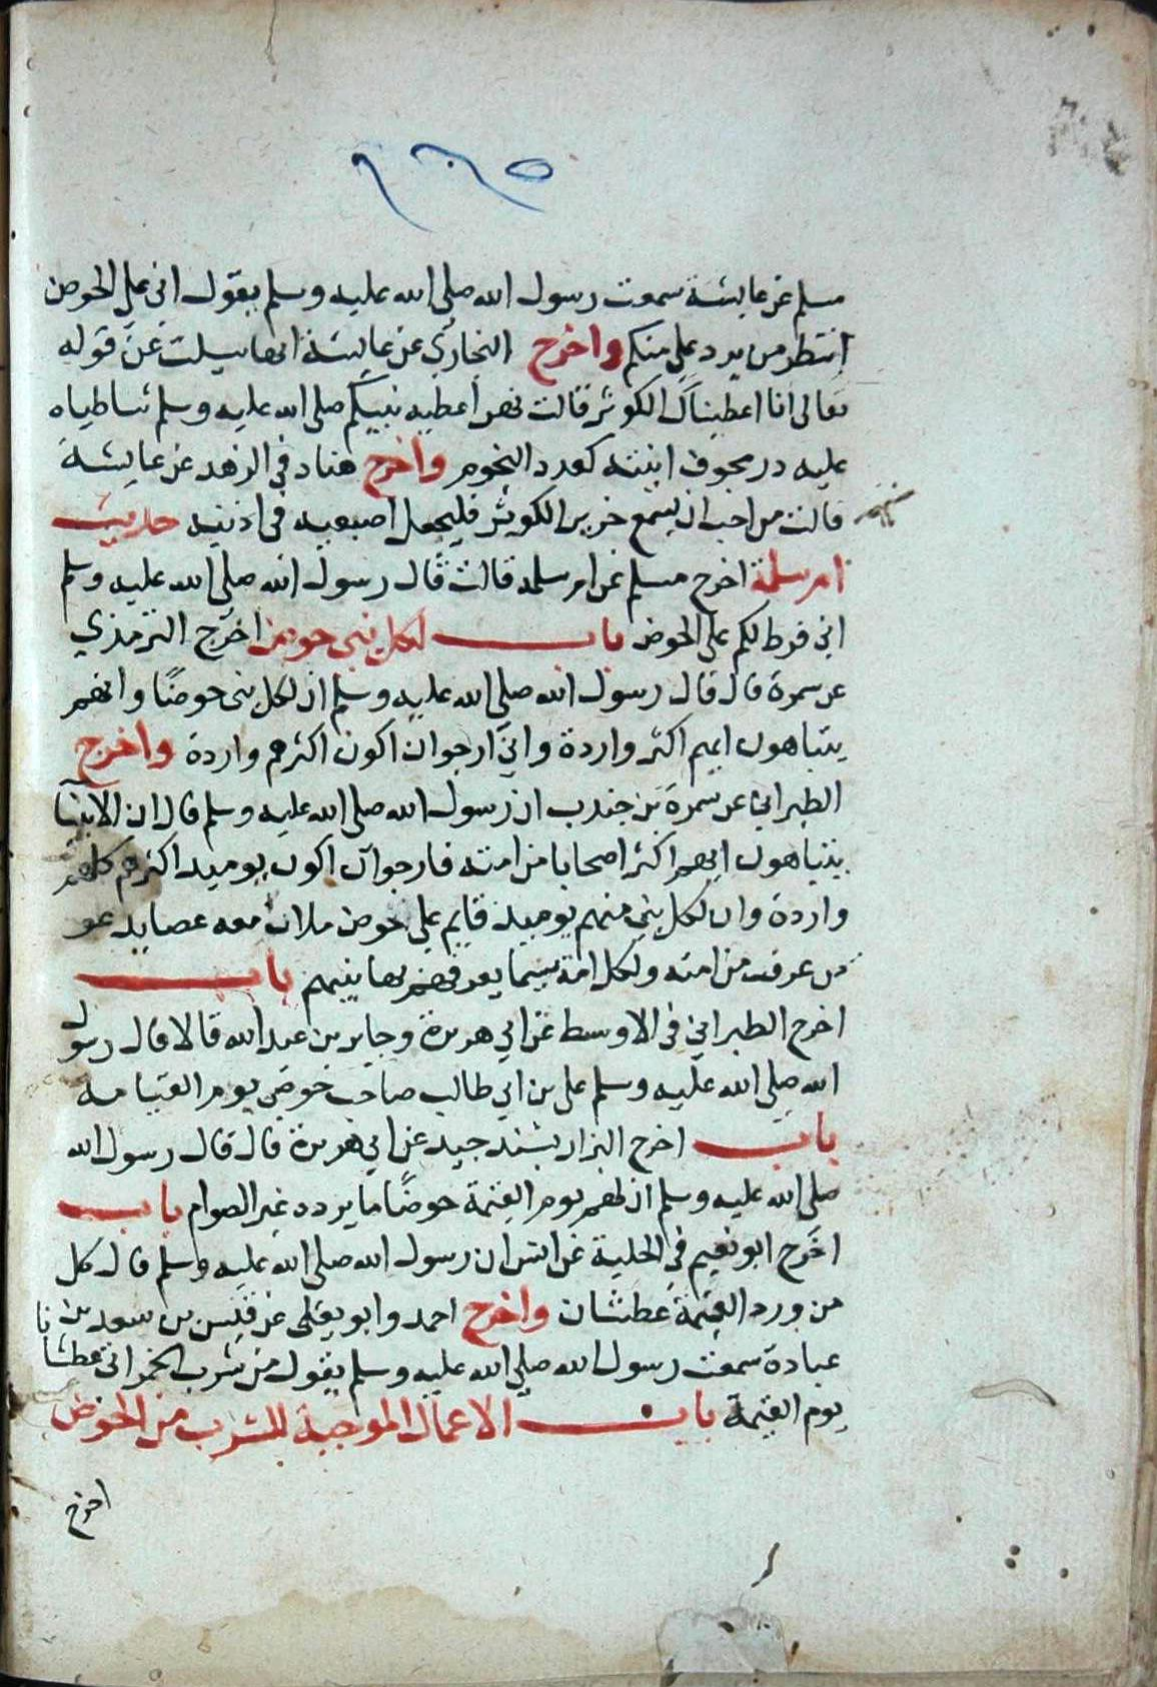 مسلم عن عايشة سمعت رسول الله صلى الله عليه وسلم يقول انى على الحوض
انتظر من يرد على منكم واخرج البخارى عن عايشة انها سيلت عن قوله
تعالى انا اعطيناك الكوثر قالت نهر اعطيه نبيكم صلى الله عليه وسلم شاطياه
عليه در مجوف انيته كعدد النجوم واخرج هناد فى الزهد عن عايشة
قالت من احب ان يسمع خرير الكوثر فليجعل اصبعيه فى اذنيه حديث
ام سلمة اخرج مسلم عن ام سلمة قالت قال رسول الله صلى الله عليه وسلم
انى فرط لكم على الحوض باب لكل نبى حوض اخرج الترمذي
عن سمرة قال قال رسول الله صلى الله عليه وسلم ان لكل نبى حوضًا وانهم
يتباهون ايهم اكثر واردة وانى ارجوان اكون اكثرهم واردة واخرج
الطبرانى عن سمرة بن جندب ان رسول الله صلى الله عليه وسلم قال ان الانبيآ
يتباهون ايهم اكثر اصحابا من امته فارجوان اكون يوميد اكثرهم كلهم
واردة وان لكل نبى منهم يوميد قايم على حوض ملان معه عصا يدعو
من عرف من امته ولكل امة سيما يعرفهم بها نبيهم باب
اخرج الطبرانى فى الاوسط عن ابى هريرة وجابر بن عبدالله قالا قال رسول
الله صلى الله عليه وسلم على بن ابى طالب صاحب حوضى يوم القيامة
باب اخرج البزار بسند جيد عن ابى هريرة قال قال رسول الله
صلى الله عليه وسلم ان لهم يوم القيمة حوضًا ما يرده غير الصوام باب
اخرج ابو نعيم فى الحلية عن انس ان رسول الله صلى الله عليه وسلم قال كل
من ورد القيمة عطشان واخرج احمد وابو يعلى عن قيس بن سعد بن
عبادة سمعت رسول الله صلى الله عليه وسلم يقول من شرب الخمر اتى عطشانا
يوم القيمة باب الاعمال الموجبة للشرب من الحوض
اخرج